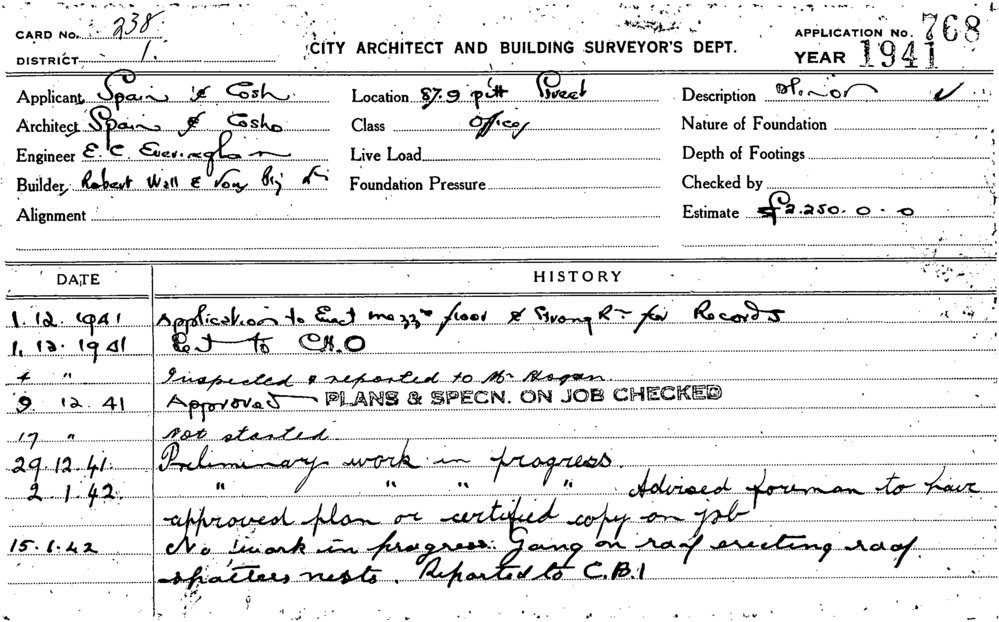 CARD No. 238
DISTRICT 1.
CITY ARCHITECT AND BUILDING SURVEYOR'S DEPT.
APPLICATION No. 768
YEAR 1941
Applicant Spain & Cosh
Location 87.9 pitt Street
Description
Architect Spain & Cosh
Class Offices
Nature of Foundation
Engineer E. C. Everingham
Live Load
Depth of Footings
Builder Robert Wall &
Foundation Pressure
Checked by
Alignment
Estimate £2.250.0.0
DATE HISTORY
1.12.1941 Application to Erect mezzne floor & Strong Rm for Records
1.12.1941 Sent to C.H.O
4 " Inspected & reported to Mr Hogan
9 12.41 Approved PLANS & SPECN. ON JOB CHECKED
17 " Not started.
29.12.41. Preliminary work in progress.
2.1.42. " " " " Advised foreman to have
approved plan or certified copy on job
15.1.42 No work in progress. Gang on roof erecting roof
spotters nests. Reported to C.B.I